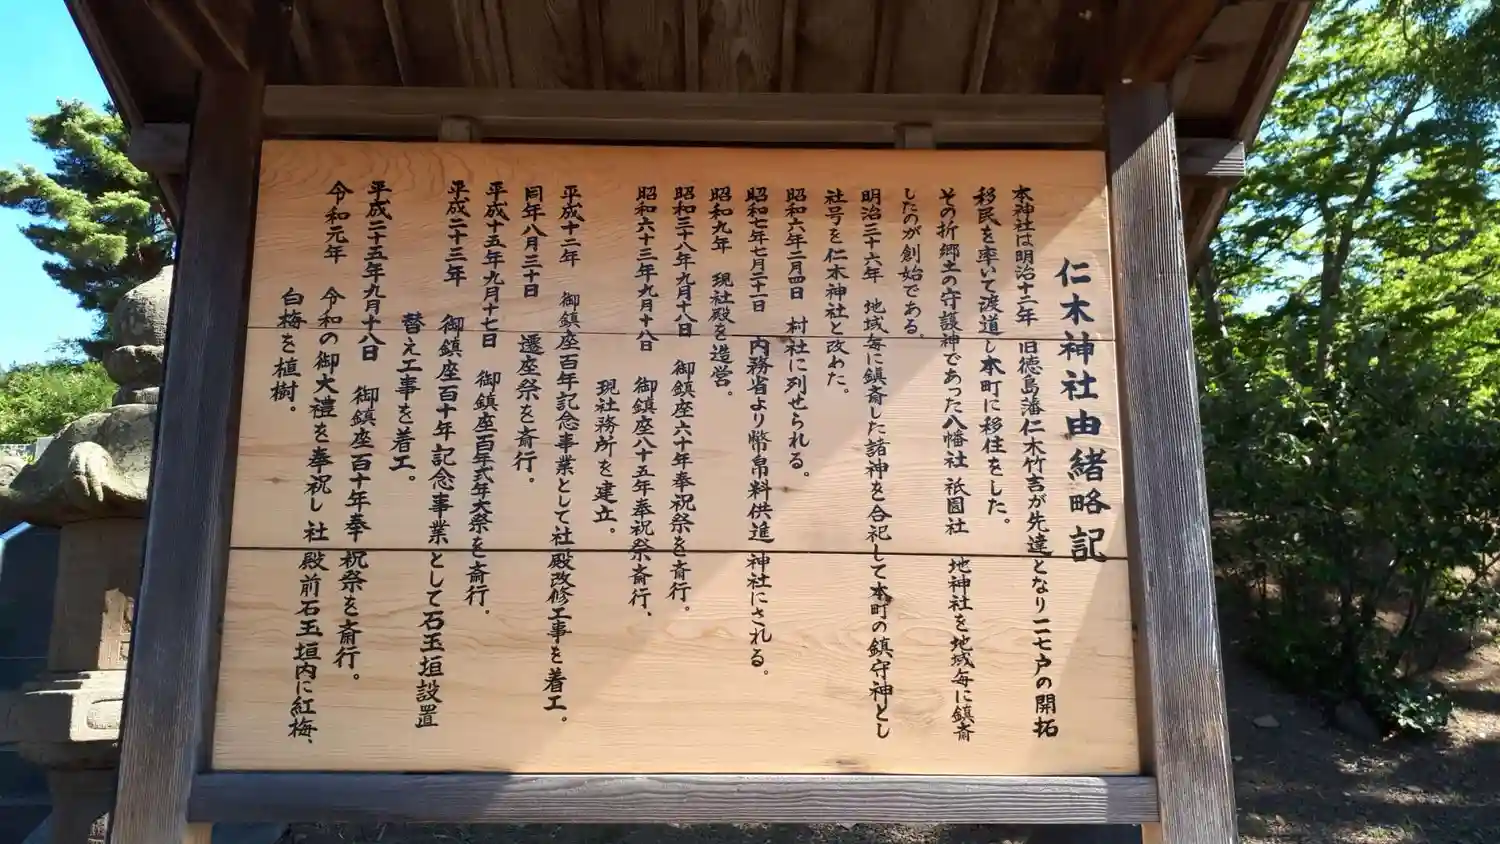 仁木神社由緒略記
本神社は明治十二年 旧徳島藩仁木竹吉が先達となり二七戸の開拓
移民を率いて渡道し本町に移住をした。
その折郷土の守護神であった八幡社 祇園社 地神社を地域毎に鎮斎
したのが創始である。
明治三十六年 地域毎に鎮斎した諸神を合祀して本町の鎮守神とし
社号を仁木神社と改めた。
昭和六年二月四日 村社に列せられる。
昭和七年七月二十一日 内務省より幣帛料供進神社にされる。
昭和九年 現社殿を造営。
昭和二十八年九月十八日 御鎮座六十年奉祝祭を斎行。
昭和六十三年九月十八日 御鎮座八十五年奉祝祭斎行、
現社務所を建立。
平成十二年 御鎮座百年記念事業として社殿改修工事を着工。
同年八月三十日 遷座祭を斎行。
平成十五年九月十七日 御鎮座百年式年大祭を斎行。
平成二十三年 御鎮座百十年記念事業として石玉垣設置
替え工事を着工。
平成二十五年九月十八日 御鎮座百十年奉祝祭を斎行。
令和元年 令和の御大禮を奉祝し社殿前石玉垣内に紅梅、
白梅を植樹。